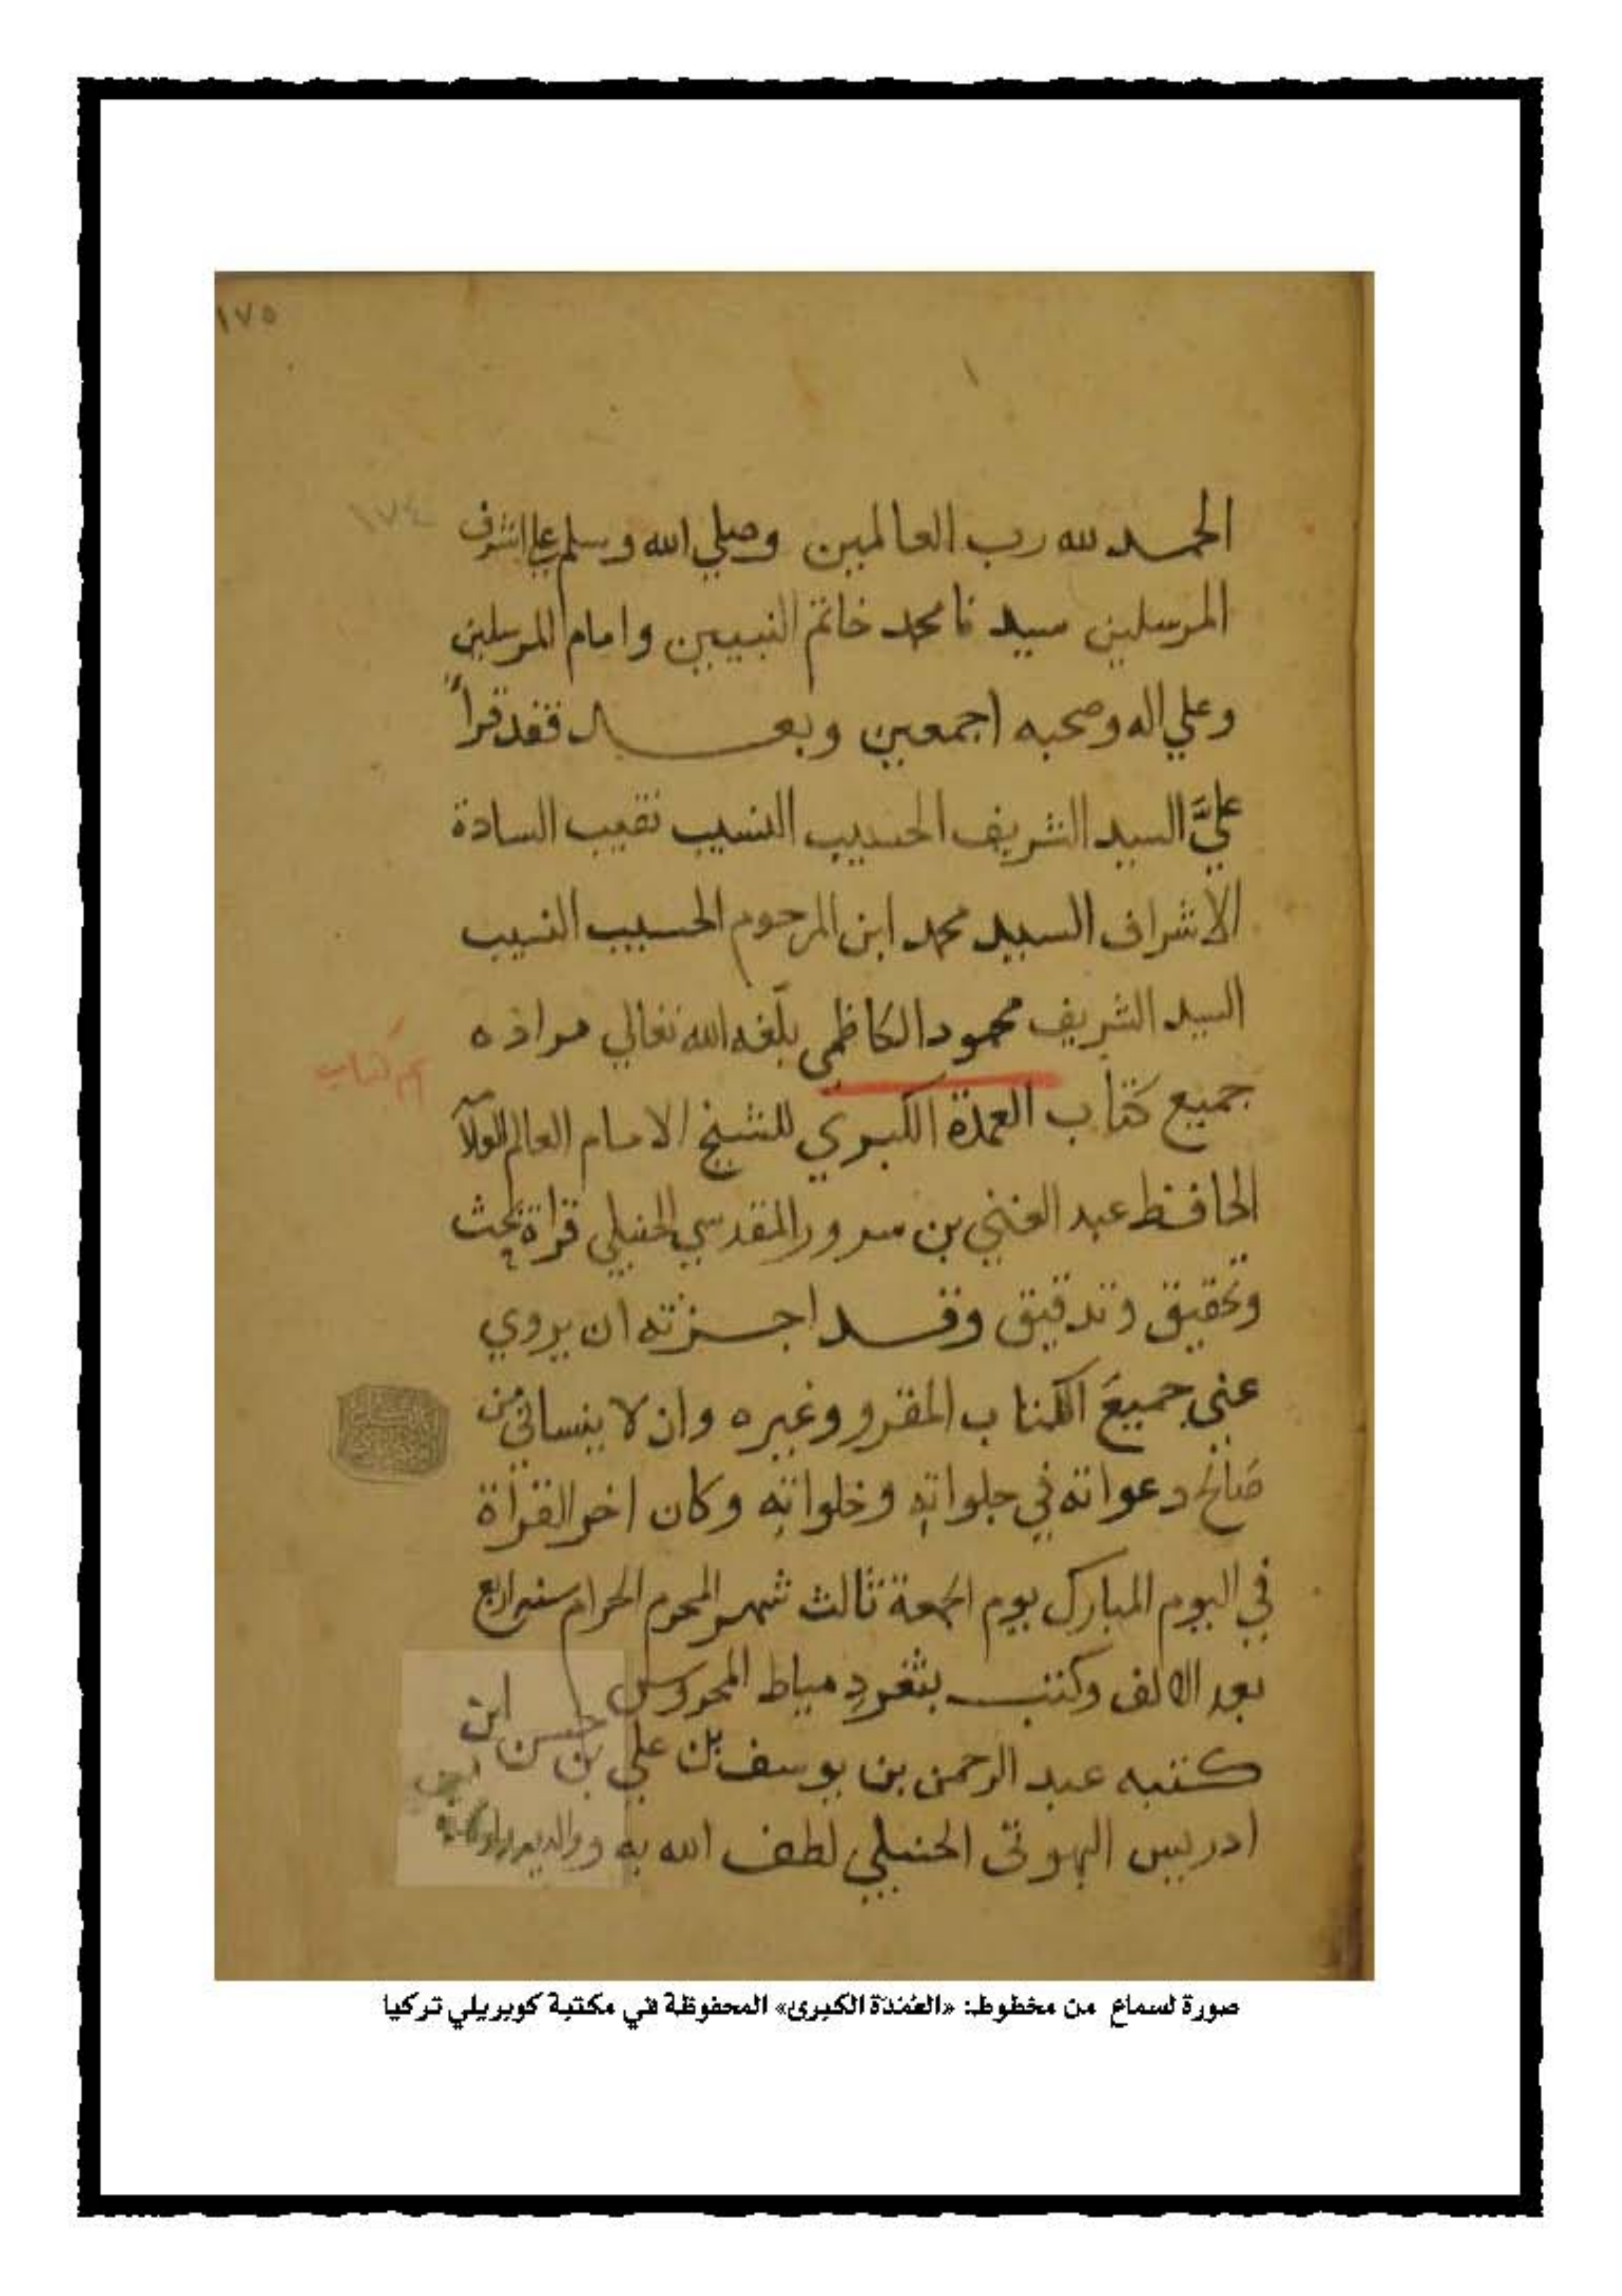 ١٧٥
١٧٤
الحمد لله رب العالمين وصلي الله وسلم علي اشرف
المرسلين سيدنا محمد خاتم النبيين وامام المرسلين
وعلي اله وصحبه اجمعين وبعد فقد قرأ
عليَّ السيد الشريف الحسيب النسيب نقيب السادة
الاشراف السيد محمد ابن المرحوم الحسيب النسيب
السيد الشريف محمود الكاظمي بلّغه الله تعالي مراده
جميع كتاب العمدة الكبري للشيخ الامام العالم
الحافظ عبد الغني بن سرور المقدسي الحنبلي قراة بحث
وتحقيق وتدقيق وقد اجزته ان يروي
عني جميعَ الكتاب المقرو وغيره وان لا ينساني من
صَالح دعواته في جلواته وخلواته وكان اخر القراة
في اليوم المبارك يوم الجمعة ثالث شهر المحرم الحرام سنه اربع
بعد الالف وكتب بثغر دمياط المحروس
كتبه عبد الرحمن بن يوسف بن علي بن حسن ابن
ادريس البهوتى الحنبلي لطف الله به ووالديه
صورة لسماع من مخطوط: «العُمْدَة الكبرى» المحفوظة في مكتبة كوبريلي تركيا